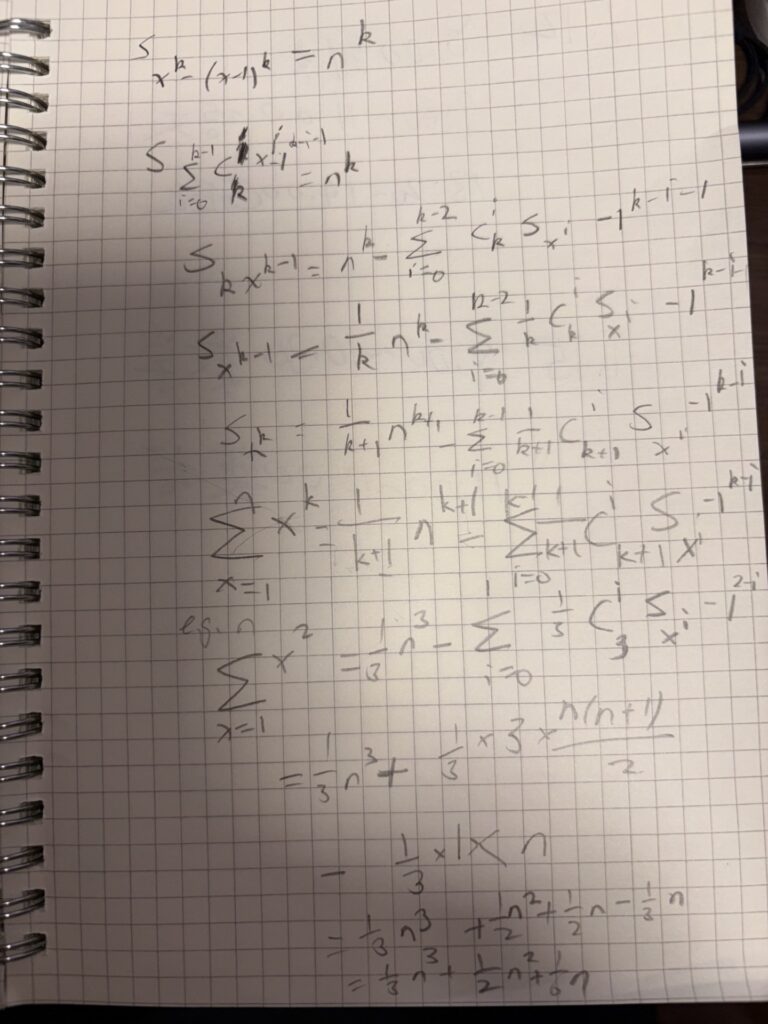 S_{x^k-(x-1)^k} = n^k
S_{\sum_{i=0}^{k-1} C_k^i x^i -1^{k-i-1}} = n^k
S_{kx^{k-1}} = n^k - \sum_{i=0}^{k-2} C_k^i S_{x^i} -1^{k-i-1}
S_{x^{k-1}} = \frac{1}{k} n^k - \sum_{i=0}^{k-2} \frac{1}{k} C_k^i S_{x^i} -1^{k-i-1}
S_{x^k} = \frac{1}{k+1} n^{k+1} - \sum_{i=0}^{k-1} \frac{1}{k+1} C_{k+1}^i S_{x^i} -1^{k-i}
\sum_{x=1}^{n} x^k = \frac{1}{k+1} n^{k+1} = \sum_{i=0}^{k-1} \frac{1}{k+1} C_{k+1}^i S_{x^i} -1^{k-i}
eg. \sum_{x=1}^{n} x^2 = \frac{1}{3} n^3 - \sum_{i=0}^{1} \frac{1}{3} C_3^i S_{x^i} -1^{2-i}
= \frac{1}{3} n^3 + \frac{1}{3} × 3 × \frac{n(n+1)}{2}
- \frac{1}{3} × 1 × n
= \frac{1}{3} n^3 + \frac{1}{2} n^2 + \frac{1}{2} n - \frac{1}{3} n
= \frac{1}{3} n^3 + \frac{1}{2} n^2 + \frac{1}{6} n